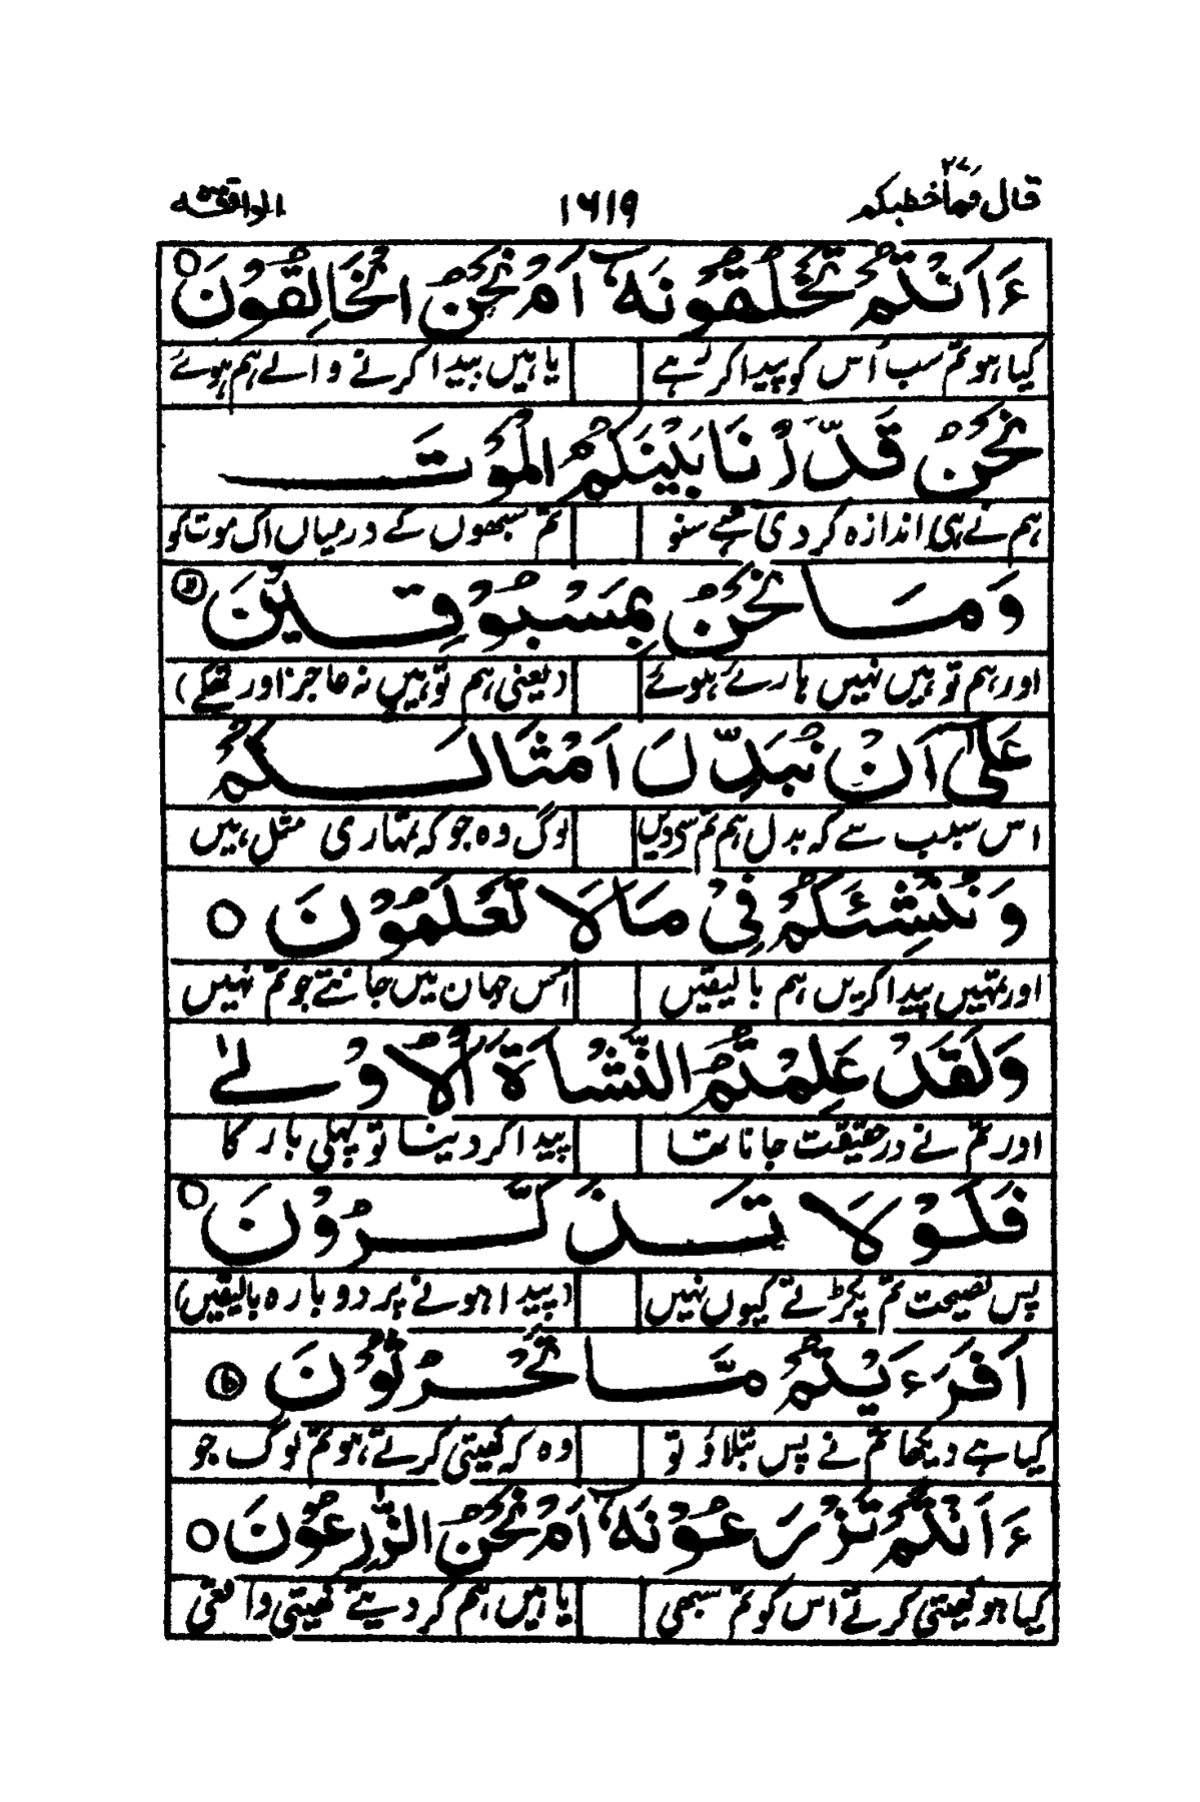 قال فما خطبكم ۲۷ ۱۶۱۹ الواقعه ۵۶
ءَاَنْتُمْ تَخْلُقُوْنَهٗٓ اَمْ نَحْنُ الْخَالِقُوْنَ ○
کیا ہو تم سب اُس کو پیدا کر رہے یا ہیں پیدا کرنے والے ہم ہوئے
نَحْنُ قَدَّرْنَا بَيْنَكُمُ الْمَوْتَ
ہم نے ہی اندازہ کر دی ہے سنو تم سبھوں کے درمیاں اک موت کو
وَمَا نَحْنُ بِمَسْبُوْقِيْنَ
اور ہم تو ہیں نہیں ہارے ہوئے (یعنی ہم تو ہیں نہ عاجز اور تھکے)
عَلٰٓى اَنْ نُّبَدِّلَ اَمْثَالَكُمْ
اس سبب سے کہ بدل ہم تم سی دیں لوگ وہ جو کہ تمہاری مثل ہیں
وَنُنْشِئَكُمْ فِيْ مَا لَا تَعْلَمُوْنَ ○
اور تمہیں پیدا کریں ہم بالیقیں اُس جہان میں جانتے جو تم نہیں
وَلَقَدْ عَلِمْتُمُ النَّشْاَةَ الْاُوْلٰى
اور تم نے در حقیقت جانا تھا پیدا کر دینا تو پہلی بار کا
فَلَوْلَا تَذَكَّرُوْنَ ○
پس نصیحت تم پکڑتے کیوں نہیں (پیدا ہونے پر دوبارہ بالیقیں)
اَفَرَءَيْتُمْ مَّا تَحْرُثُوْنَ ط
کیا ہے دیکھا تم نے پس بتلاؤ تو وہ کہ کھیتی کرتے ہو تم لوگ جو
ءَاَنْتُمْ تَزْرَعُوْنَهٗٓ اَمْ نَحْنُ الزّٰرِعُوْنَ ○
کیا ہو کھیتی کرتے اس کو تم سبھی یا ہیں ہم کر دیتے کھیتی واقعی